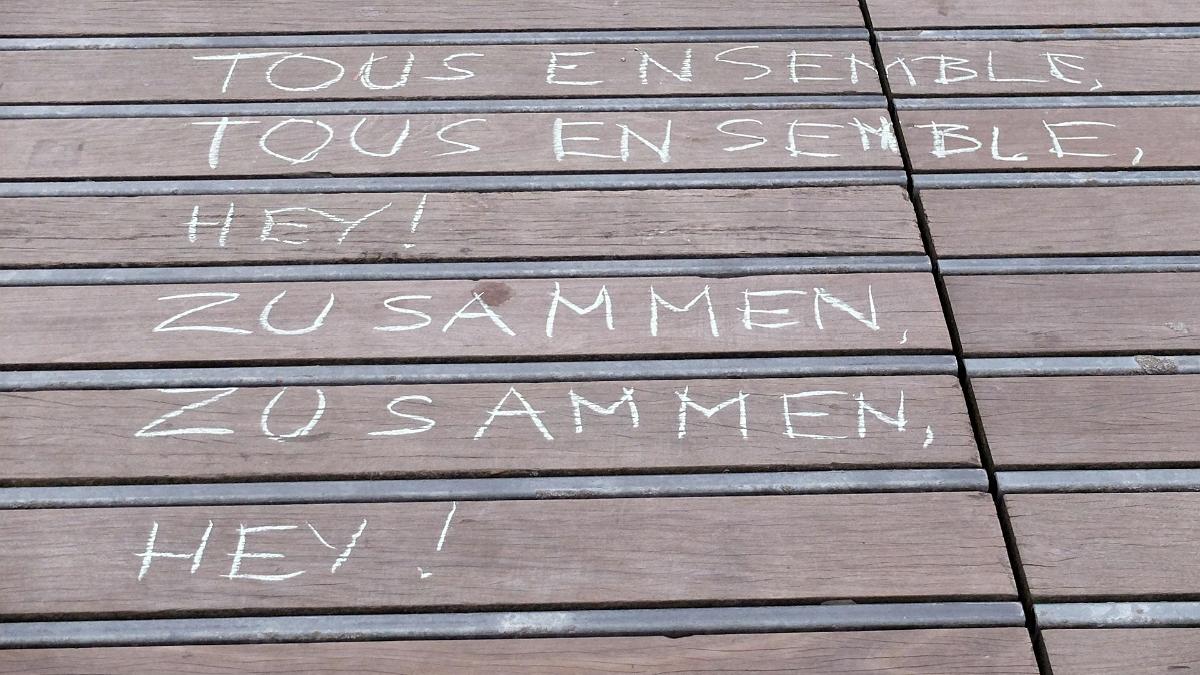 TOUS ENSEMBLE,
TOUS ENSEMBLE,
HEY!
ZUSAMMEN,
ZUSAMMEN,
HEY!